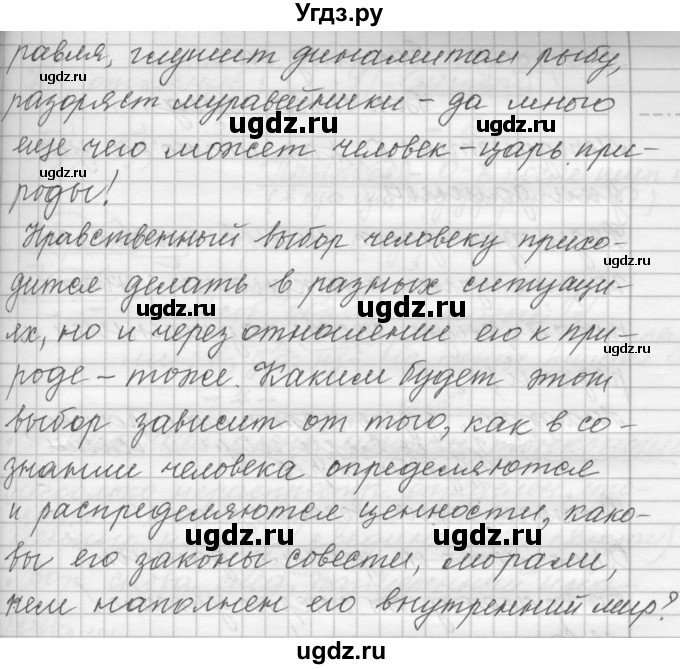 Угдз.ру
равля, глушит динамитом рыбу,
ugdz.ru
ugdz.ru
разоряет муравейники – да много
ugdz.ru
ugdz.ru
еще чего может человек – царь при-
ugdz.ru
роды!
Нравственный выбор человеку прихо-
ugdz.ru
дится делать в разных ситуаци-
ugdz.ru
ugdz.ru
ях, но и через отношение его к при-
ugdz.ru
роде – тоже. Каким будет этот
выбор зависит от того, как в со-
знании человека определяются
и распределяются ценности, како-
ugdz.ru
ugdz.ru
вы его законы совести, морали,
чем наполнен его внутренний мир?
ugdz.ru